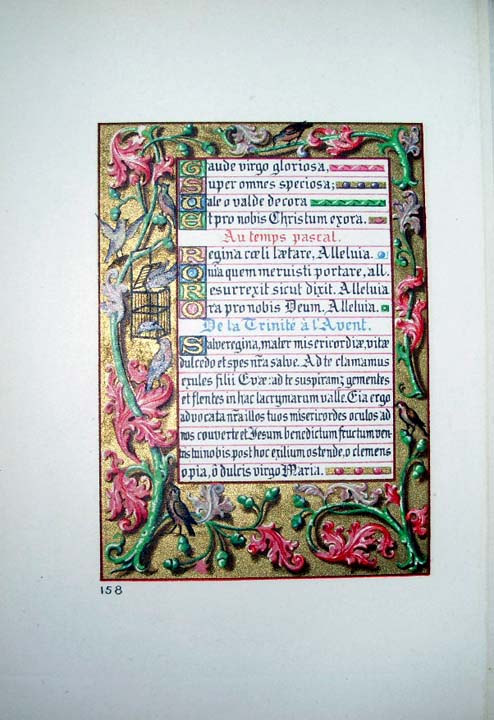 Gaude virgo gloriosa,
Super omnes speciosa;
Vale o valde decora
Et pro nobis Christum exora.
Au temps pascal.
Regina cœli lætare, Alleluia.
Quia quem meruisti portare, all.
Resurrexit sicut dixit. Alleluia
Ora pro nobis Deum, Alleluia.
De la Trinité à l'Avent.
Salve regina, mater misericordiæ, vitæ
dulcedo et spes nr̃a salve. Ad te clamamus
exules filii Evæ: ad te suspiram9 gementes
et flentes in hac lacrymarum valle. Eia ergo
advocata nr̃a illos tuos misericordes oculos ad
nos converte et Jesum benedictum fructum ven
nobis post hoc exilium ostende, o clemens
o pia, o dulcis virgo Maria.
158